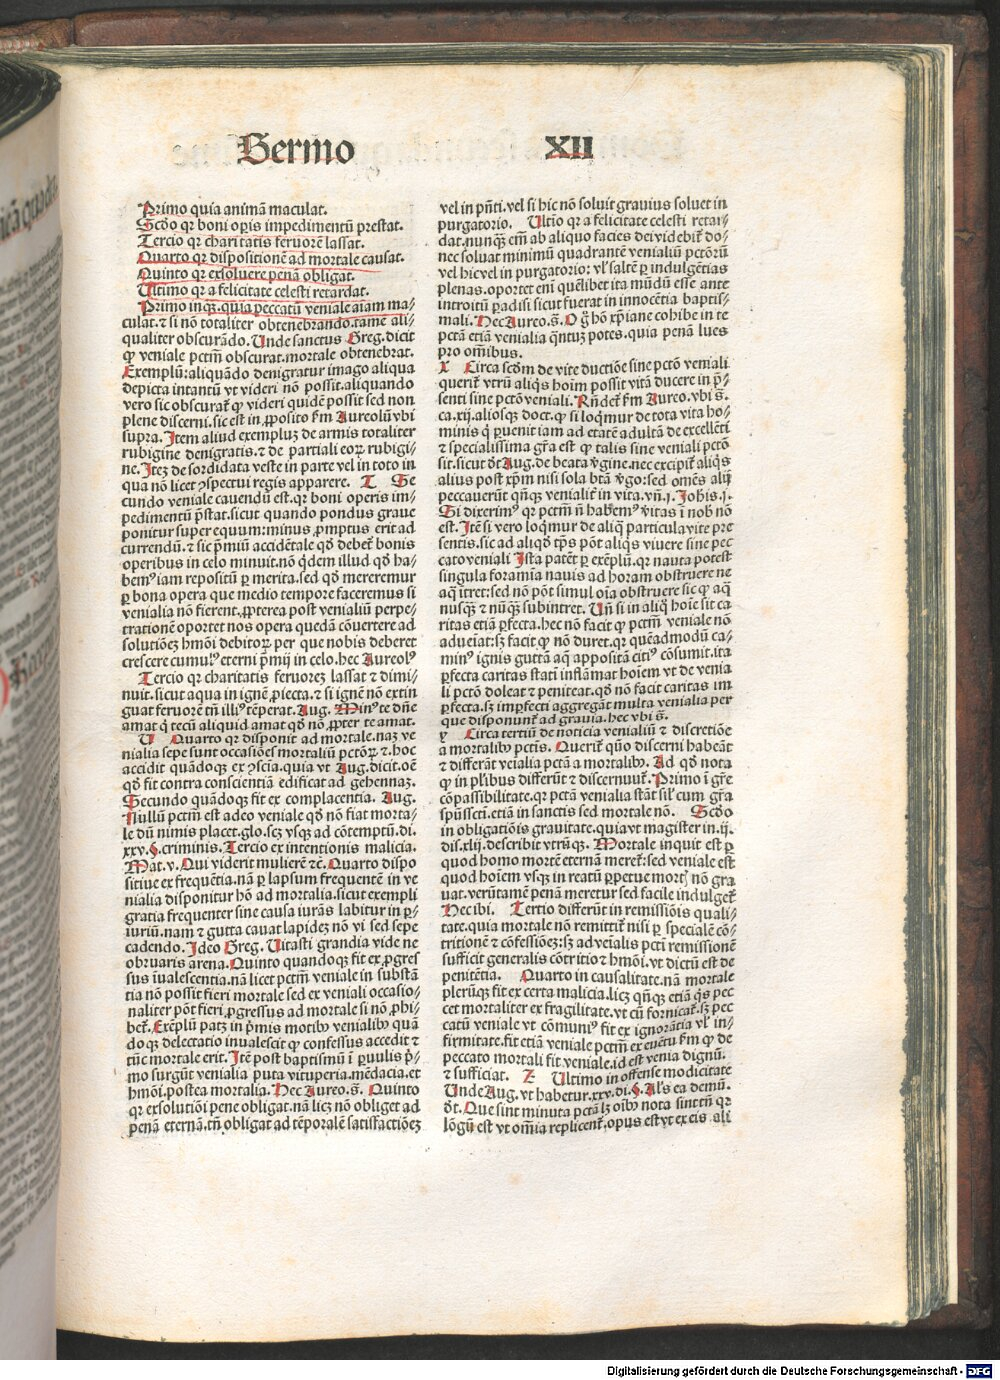 Sermo XII
Primo quia animā maculat.
Scd̄o qꝛ boni oꝑis impedimentū prestat.
Tercio qꝛ charitatis feruorē lassat.
Quarto qꝛ dispositionē ad mortale causat.
Quinto qꝛ exsoluere penā obligat.
Ultimo qꝛ a felicitate celesti retardat.
Primo inqȝ. quia peccatū veniale aīam ma⸗
culat. ⁊ si nō totaliter obtenebrando. tamē ali⸗
qualiter obscurādo. Unde sanctus Greg. dicit
ꝙ veniale pctm̄ obscurat. mortale obtenebrat.
Exemplū: aliquādo denigratur imago aliqua
depicta intantū vt videri nō possit. aliquando
vero sic obscurat̄ ꝙ videri quidē possit sed non
plene discerni. sic est in ꝓposito ẜm Aureolū vbi
supra. Item aliud exempluȝ de armis totaliter
rubigine denigratis. ⁊ de partiali eoꝝ rubigi⸗
ne. Iteȝ de sordidata veste in parte vel in toto in
qua nō licet ꝯspectui regis apparere. T Se
cundo veniale cauendū est. qꝛ boni operis im⸗
pedimentū p̄stat. sicut quando pondus graue
ponitur super equum: minus ꝓmptus erit ad
currendū. ⁊ sic p̄miū accidētale qd̄ debet̄ bonis
operibus in celo minuit. nō q̄dem illud qd̄ ha⸗
bemꝰ iam repositū ꝑ merita. sed qd̄ mereremur
ꝑ bona opera que medio tempore faceremus si
venialia nō fierent. ꝓpterea post venialiū perpe⸗
trationē oportet nos opera quedā cōuertere ad
solutiōeȝ hmōi debitoꝝ per que nobis deberet
crescere cumulꝰ eterni p̄mij in celo. hec Aureolꝰ
Tercio qꝛ charitatis feruoreȝ lassat ⁊ dimi⸗
nuit. sicut aqua in ignē ꝓiecta. ⁊ si ignē nō extin
guat feruorē tn̄ illiꝰ tēperat. Aug. Minꝰ te dn̄e
amat q̄ tecū aliquid amat qd̄ nō ꝓpter te amat.
U Quarto qꝛ disponit ad mortale. naȝ ve
nialia sepe sunt occasiōes mortaliū pctōꝝ ⁊ hoc
accidit quādoqȝ ex ꝯscīa. quia vt Aug. dicit. oē
qd̄ fit contra conscientiā edificat ad gehennaȝ.
Secundo quādoqȝ fit ex complacentia. Aug.
Nullū pctm̄ est adeo veniale qd̄ nō fiat morta⸗
le dū nimis placet. glo. scȝ vsqȝ ad cōtemptū. di.
xxv. §. criminis. Tercio ex intentionis malicia.
Mat. v. Qui viderit mulierē ⁊c̄. Quarto dispo
sitiue ex frequētia. nā ꝑ lapsum frequentē in ve
nialia disponitur hō ad mortalia. sicut exempli
gratia frequenter sine causa iurās labitur in ꝑ⸗
iuriū. nam ⁊ gutta cauat lapideȝ nō vi sed sepe
cadendo. Ideo Greg. Uitasti grandia vide ne
obruaris arena. Quinto quandoqȝ fit ex ꝓgres
sus īualescentia. nā licet pctm̄ veniale in substā
tia nō possit fieri mortale sed ex veniali occasio⸗
naliter pōt fieri ꝓgressus ad mortale si nō ꝓhi⸗
bet̄. Exēplū patȝ in p̄mis motibꝰ venialibꝰ quā
do qȝ delectatio inualescit ꝙ confessus accedit ⁊
tūc mortale erit. Itē post baptismū ī ꝑuulis p̄⸗
mo surgūt venialia puta vituperia. mēdacia. et
hmōi. postea mortalia. Hec Aureo. s̄. Quinto
qꝛ exsolutiōi pene obligat. nā licȝ nō obliget ad
penā eternā. tn̄ obligat ad tēporalē satisfactiōeȝ
vel in pn̄ti. vel si hic nō soluit grauius soluet in
purgatorio. Ultīo qꝛ a felicitate celesti retar⸗
dat. nunqȝ em̄ ab aliquo facies dei videbit̄ do⸗
nec soluat minimū quadrantē venialiū pctōrū
vel hic vel in purgatorio: vl̓ saltē ꝑ indulgētias
plenas. oportet eni quēlibet ita mūdū esse ante
introitū ꝑadisi sicut fuerat in innocētia baptis⸗
mali. Hec Aureo. s̄. O ḡ hō xp̄iane cohibe in te
pctā etiā venialia q̄ntuȝ potes. quia penā lues
pro om̄ibus.
X Circa scd̄m de vite ductiōe sine pctō veniali
querit̄ vtrū aliqs hoīm possit vitā ducere in p̄⸗
senti sine pctō veniali. Rn̄det̄ ẜm Aureo. vbi s̄.
ca. xij. aliosqȝ doct. ꝙ si loqm̄ur de tota vita ho⸗
minis q̄ ꝑuenit iam ad etatē adultā de excellēti
⁊ specialissima gr̄a est ꝙ talis sine veniali pctō
sit. sicut dt̄ Aug. de beata v̄gine. nec excipit̄ aliqs
alius post xp̄m nisi sola btā v̄go: sed omēs alij
peccauerūt qn̄qȝ venialit̄ in vita. vn̄. j. Johīs. j.
Si dixerimꝰ qꝛ pctm̄ n̄ habemꝰ v̄itas ī nob̄ nō
est. Itē si vero loqm̄ur de aliq̄ particula vite pre
sentis. sic ad aliqd̄ tp̄s pōt aliqs viuere sine pec
cato veniali Ista patēt ꝑ exēplū. qꝛ nauta potest
singula foramīa nauis ad horam obstruere ne
aq̄ itret: sed nō pōt simul oīa obstruere sic ꝙ aq̄
nusqȝ ⁊ nūqȝ subintret. Un̄ si in aliq̄ hoīe sit ca
ritas etiā ꝑfecta. hec nō facit ꝙ pctm̄ veniale nō
adueīat: sȝ facit ꝙ nō duret. qꝛ quēadmodū ca⸗
minꝰ ignis guttā aq̄ appositā citiꝰ cōsumit. ita
ꝑfecta caritas statī inflāmat hoīem vt de venia
li pctō doleat ⁊ peniteat. qd̄ nō facit caritas im
ꝑfecta. sȝ imꝑfecti aggregāt multa venialia per
que disponunt̄ ad grauia. hec vbi s̄.
y Circa tertiū de noticia venialiū ⁊ discretiōe
a mortalibꝰ pctīs. Querit̄ quō discerni habeāt
⁊ differāt veīalia pctā a mortalibꝰ. Ad qd̄ nota
ꝙ in pl̓ibus differūt ⁊ discernuut̄. Primo ī gr̄e
cōpassibilitate. qꝛ pctā venialia stāt sil̓ cum gr̄a
spūsscti. etiā in sanctis sed mortale nō. Scd̄o
in obligatiōis grauitate. quia vt magister in. ij.
dis. xlij. describit vtrūqȝ. Mortale inquit est ꝑ
quod homo mortē eternā meret̄: sed veniale est
quod hoīem vsqȝ in reatū ꝑpetue mortꝭ nō gra
uat. verūtamē penā meretur sed facile indulget̄
Hec ibi. Tertio differūt in remissiōis quali⸗
tate. quia mortale nō remittit̄ nisi ꝑ specialē cō⸗
tritionē ⁊ cōfessiōeȝ: sȝ ad veīalis pcti remissionē
sufficit generalis cōtritio ⁊ hmōi. vt dictū est de
penitētia. Quarto in causalitate. nā mortale
plerūqȝ fit ex certa malicia. licȝ qn̄qȝ etiā q̄s pec
cet mortaliter ex fragilitate. vt cū fornicat̄. sȝ pec
catū veniale vt cōmuniꝰ fit ex ignorātia vl̓ in⸗
firmitate. fit etiā veniale pctm̄ ex euētu ẜm ꝙ de
peccato mortali fit veniale. id est venia dignū.
⁊ sufficiat. Z Ultimo in offense modicitate
Unde Aug. vt habetur. xxv. di. §. Al̓s ea demū.
dt̄. Que sint minuta pctā lȝ oībꝰ nota sint tn̄ qꝛ
lōgū est vt om̄ia replicent̄. opus est vt ex eis ali
Digitalisierung gefördert durch die Deutsche Forschungsgemeinschaft - DFG